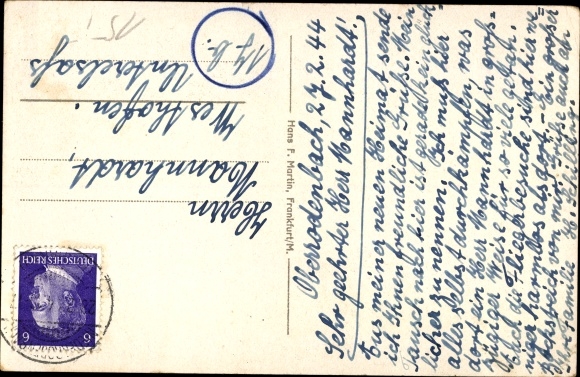 Oberrodenbach, 27.2.44
Sehr geehrter Herr Mannhardt!
Aus meiner neuen Heimat sende
ich Ihnen freundliche Grüße. Mein
Tausch nach hier ist geradezu ein glück-
licher zu nennen. Ich muß hier
alles selbst durchkämpfen, was
dort ein Herr Mannhardt in groß-
zügiger Weise für so viele getan.
Auch die Fliegerbesuche sind hier we-
niger harmlos als dort. – Ein großer
von mir. Grüße auch an
Ihre Familie H. Schilling.
Hans F. Martin, Frankfurt/M.
Herrn
Mannhardt,
Westhofen.
Unterelsaß
15.-
DEUTSCHES REICH
6 6